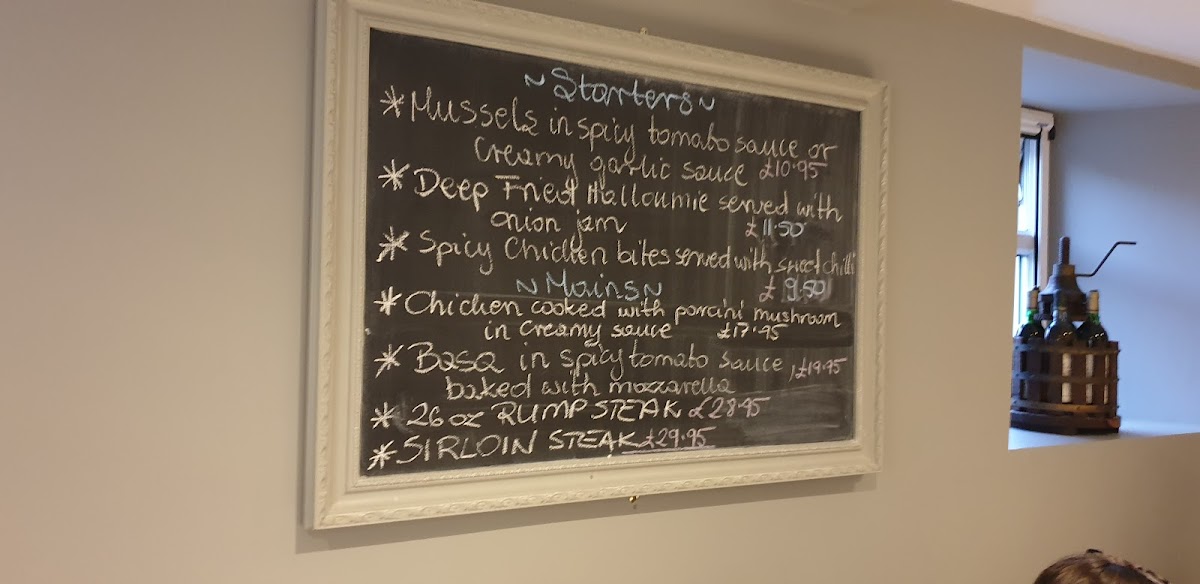 ~Starters~
* Mussels in spicy tomato sauce or
creamy garlic sauce £10.95
* Deep Fried Halloumie served with
onion jam £11.50
* Spicy Chicken bites served with sweet chilli
£9.50
~Mains~
* Chicken cooked with porcini mushroom
in creamy sauce £17.95
* Basa in spicy tomato sauce, £19.95
baked with mozzarella
* 26 oz RUMP STEAK £28.95
* SIRLOIN STEAK £29.95